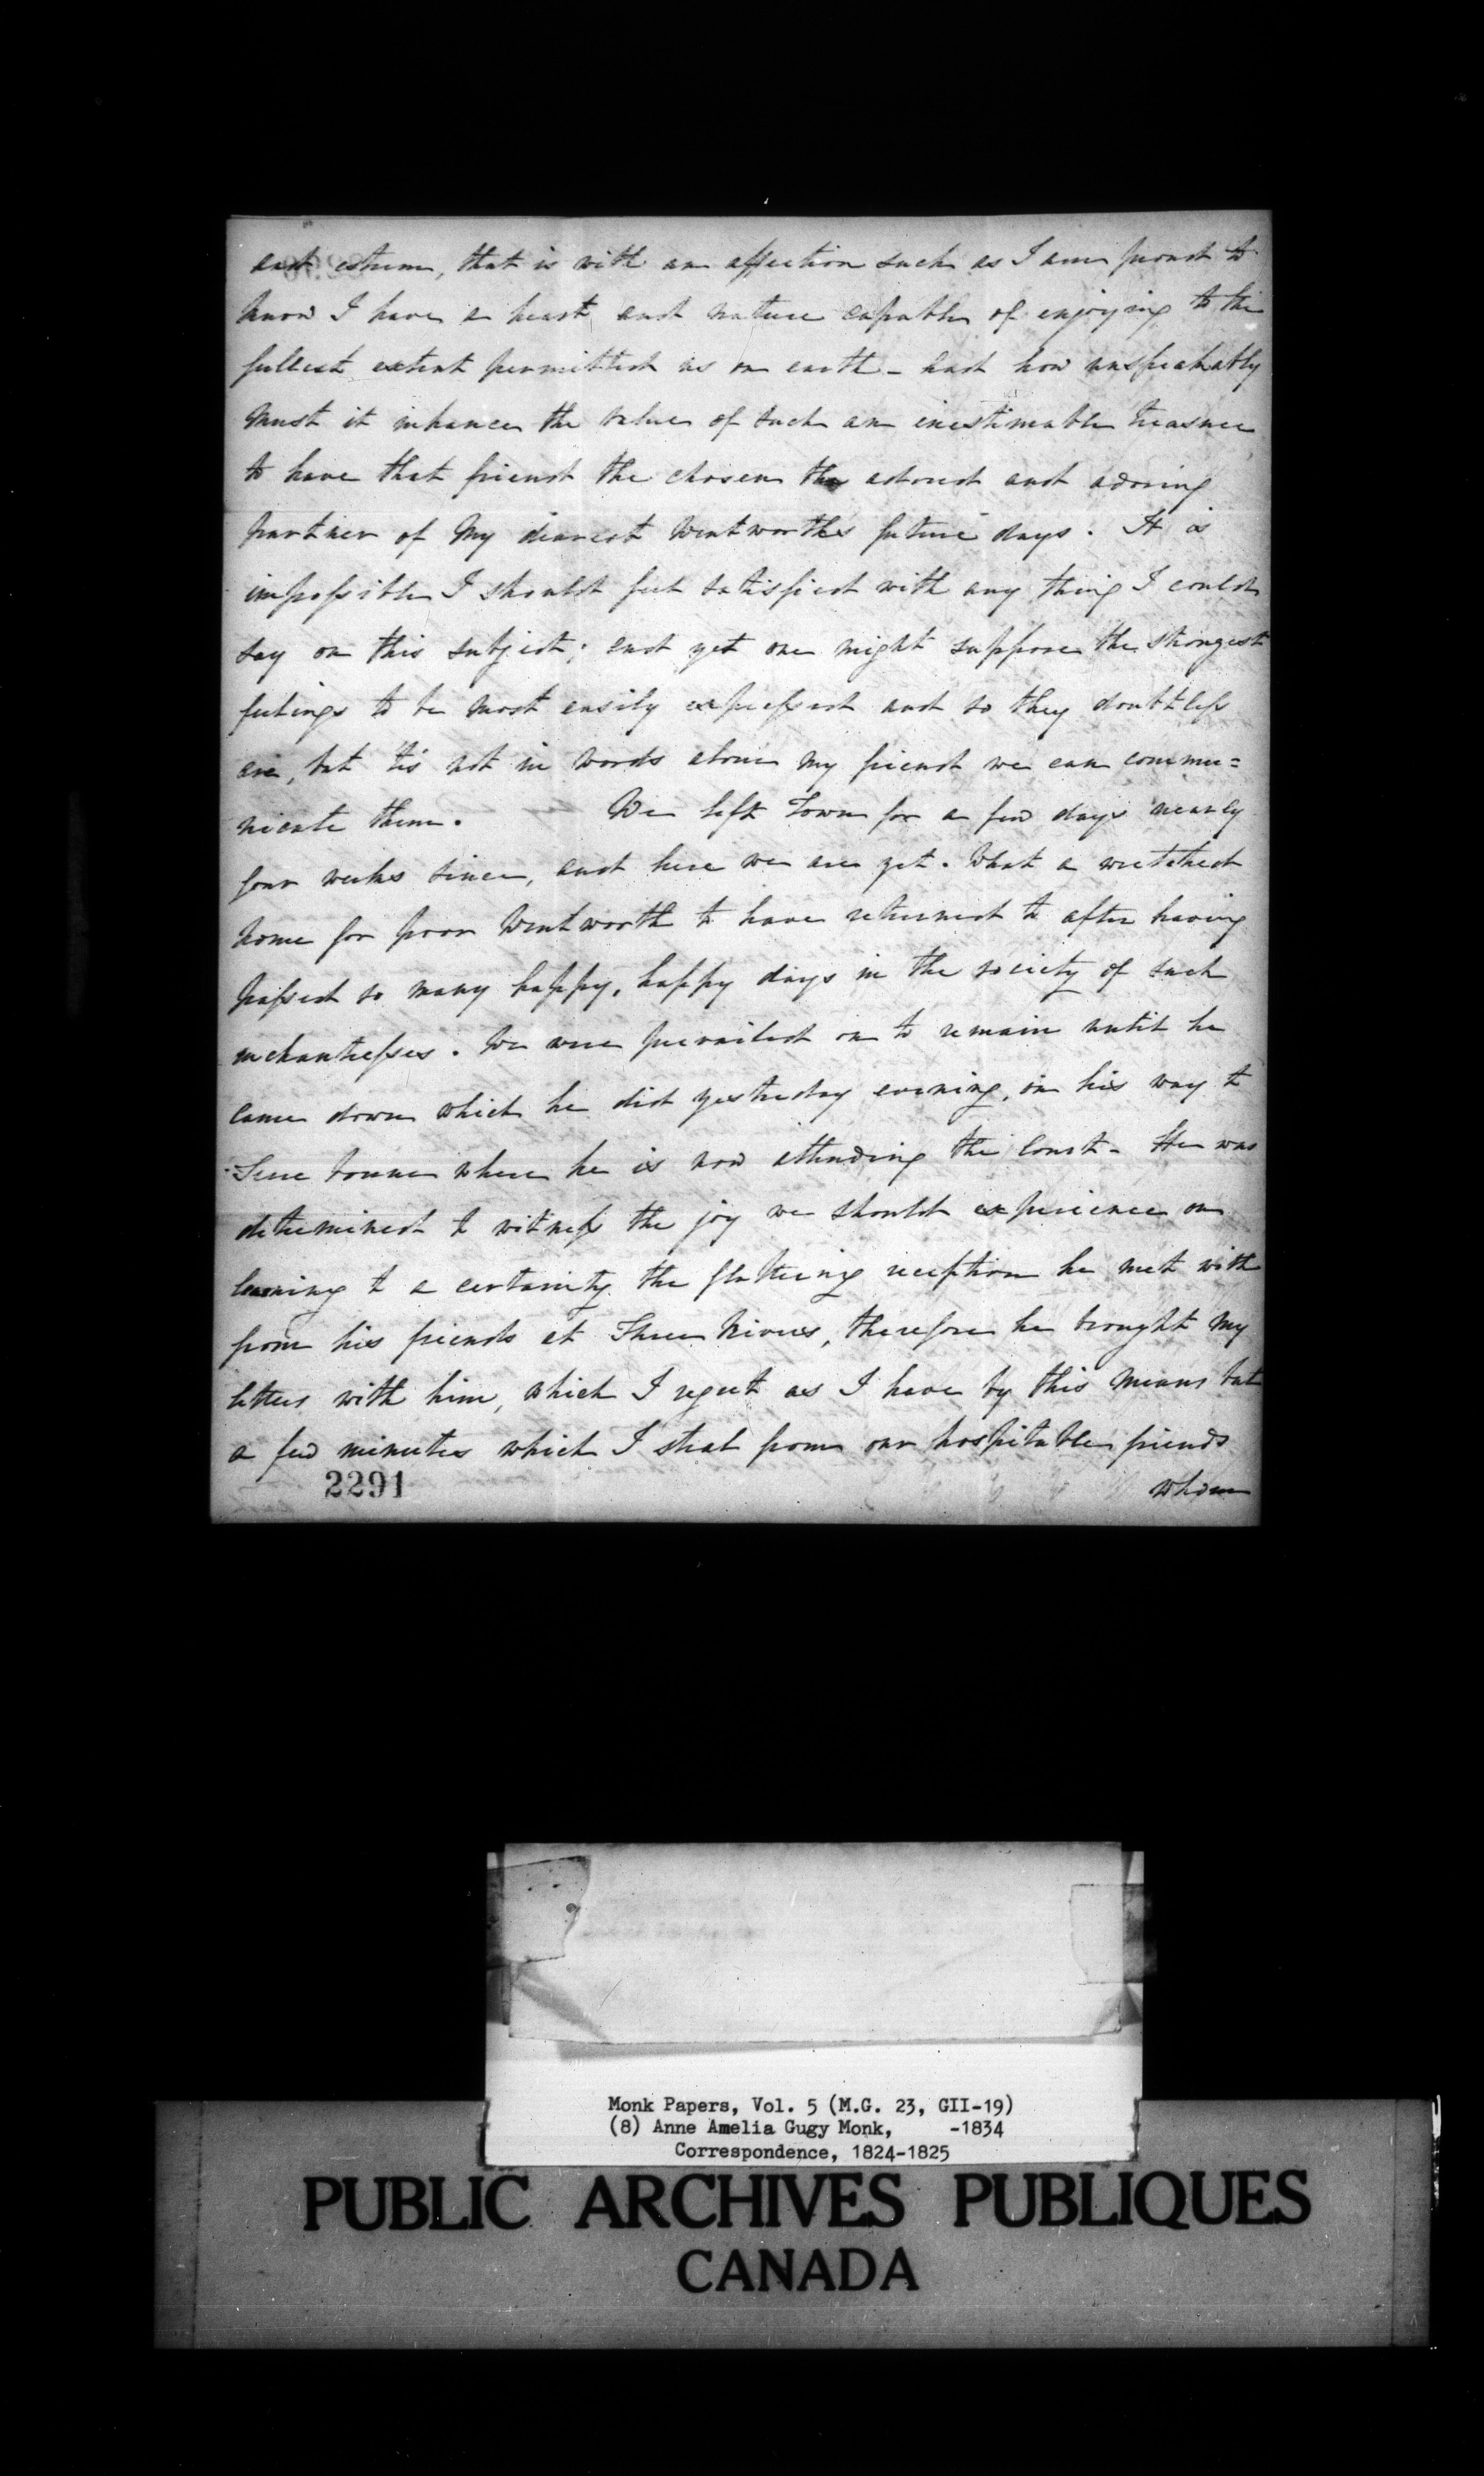 and esteem, that is with an affection such as I am proud to
know I have a heart and nature capable of enjoying to the
fullest extent permitted us on earth - and how unspeakably
must it inhance the value of such an inestimable treasure
to have that friend the chosen the adored and adoring
partner of my dearest Wentworths future days. It is
impossible I should feel satisfied with any thing I could
say on this subject; and yet one might suppose the strongest
feelings to be most easily expressed and so they doubtless
are, but 'tis not in words alone my friend we can commu=
nicate them. We left Town for a few days nearly
four weeks since, and here we are yet. What a wretched
home for poor Wentworth to have returned to after having
passed so many happy, happy days in the society of such
inchantresses. We were prevailed on to remain until he
came down which he did yesterday evening, on his way to
where he is now attending the Court - He was
determined to witness the joy we should experience on
learning to a certainty the flattering reception he met with
from his friends at Three Rivers, therefore he brought my
letters with him, which I regret as I have by this means but
a few minutes which I steal from our hospitable friends
whom
2291
Monk Papers, Vol. 5 (M.G. 23, GII-19)
(8) Anne Amelia Gugy Monk, -1834
Correspondence, 1824-1825
PUBLIC ARCHIVES PUBLIQUES
CANADA